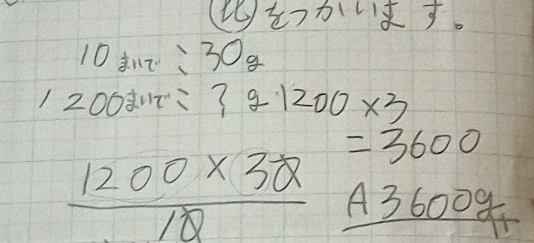 比をつかいます。
10まいで:30g
1200まいで:?g 1200×3
=3600
1200×30
10
A3600g